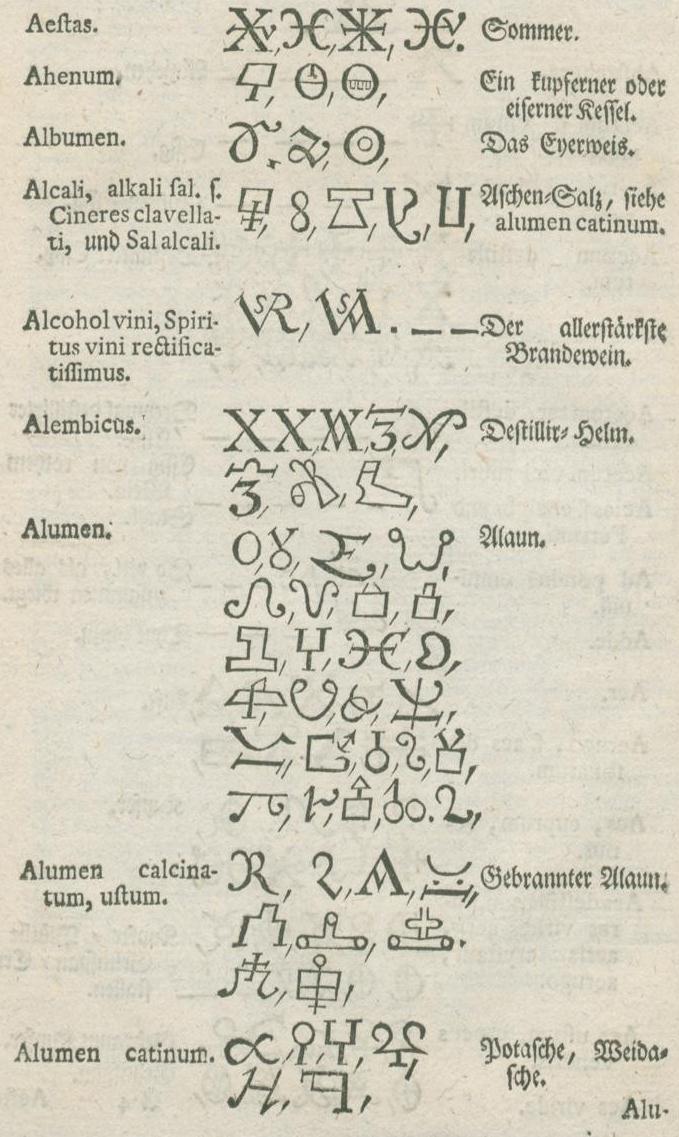 Aeſtas. Sommer.
Ahenum. Ein kupferner oder
eiſerner Keſſel.
Albumen. Das Eyerweis.
Alcali, alkali ſal. ſ. Aſchen-Salz, ſiehe
Cineres clavella- alumen catinum.
ti, und Sal alcali.
Alcohol vini, Spiri- Der allerſtärkſte
tus vini rectifica- Brandewein.
tiſſimus.
Alembicus. Deſtillir-Helm.
Alumen. Alaun.
Alumen calcina- Gebrannter Alaun.
tum, uſtum.
Alumen catinum. Potaſche, Weida-
ſche.
Alu-